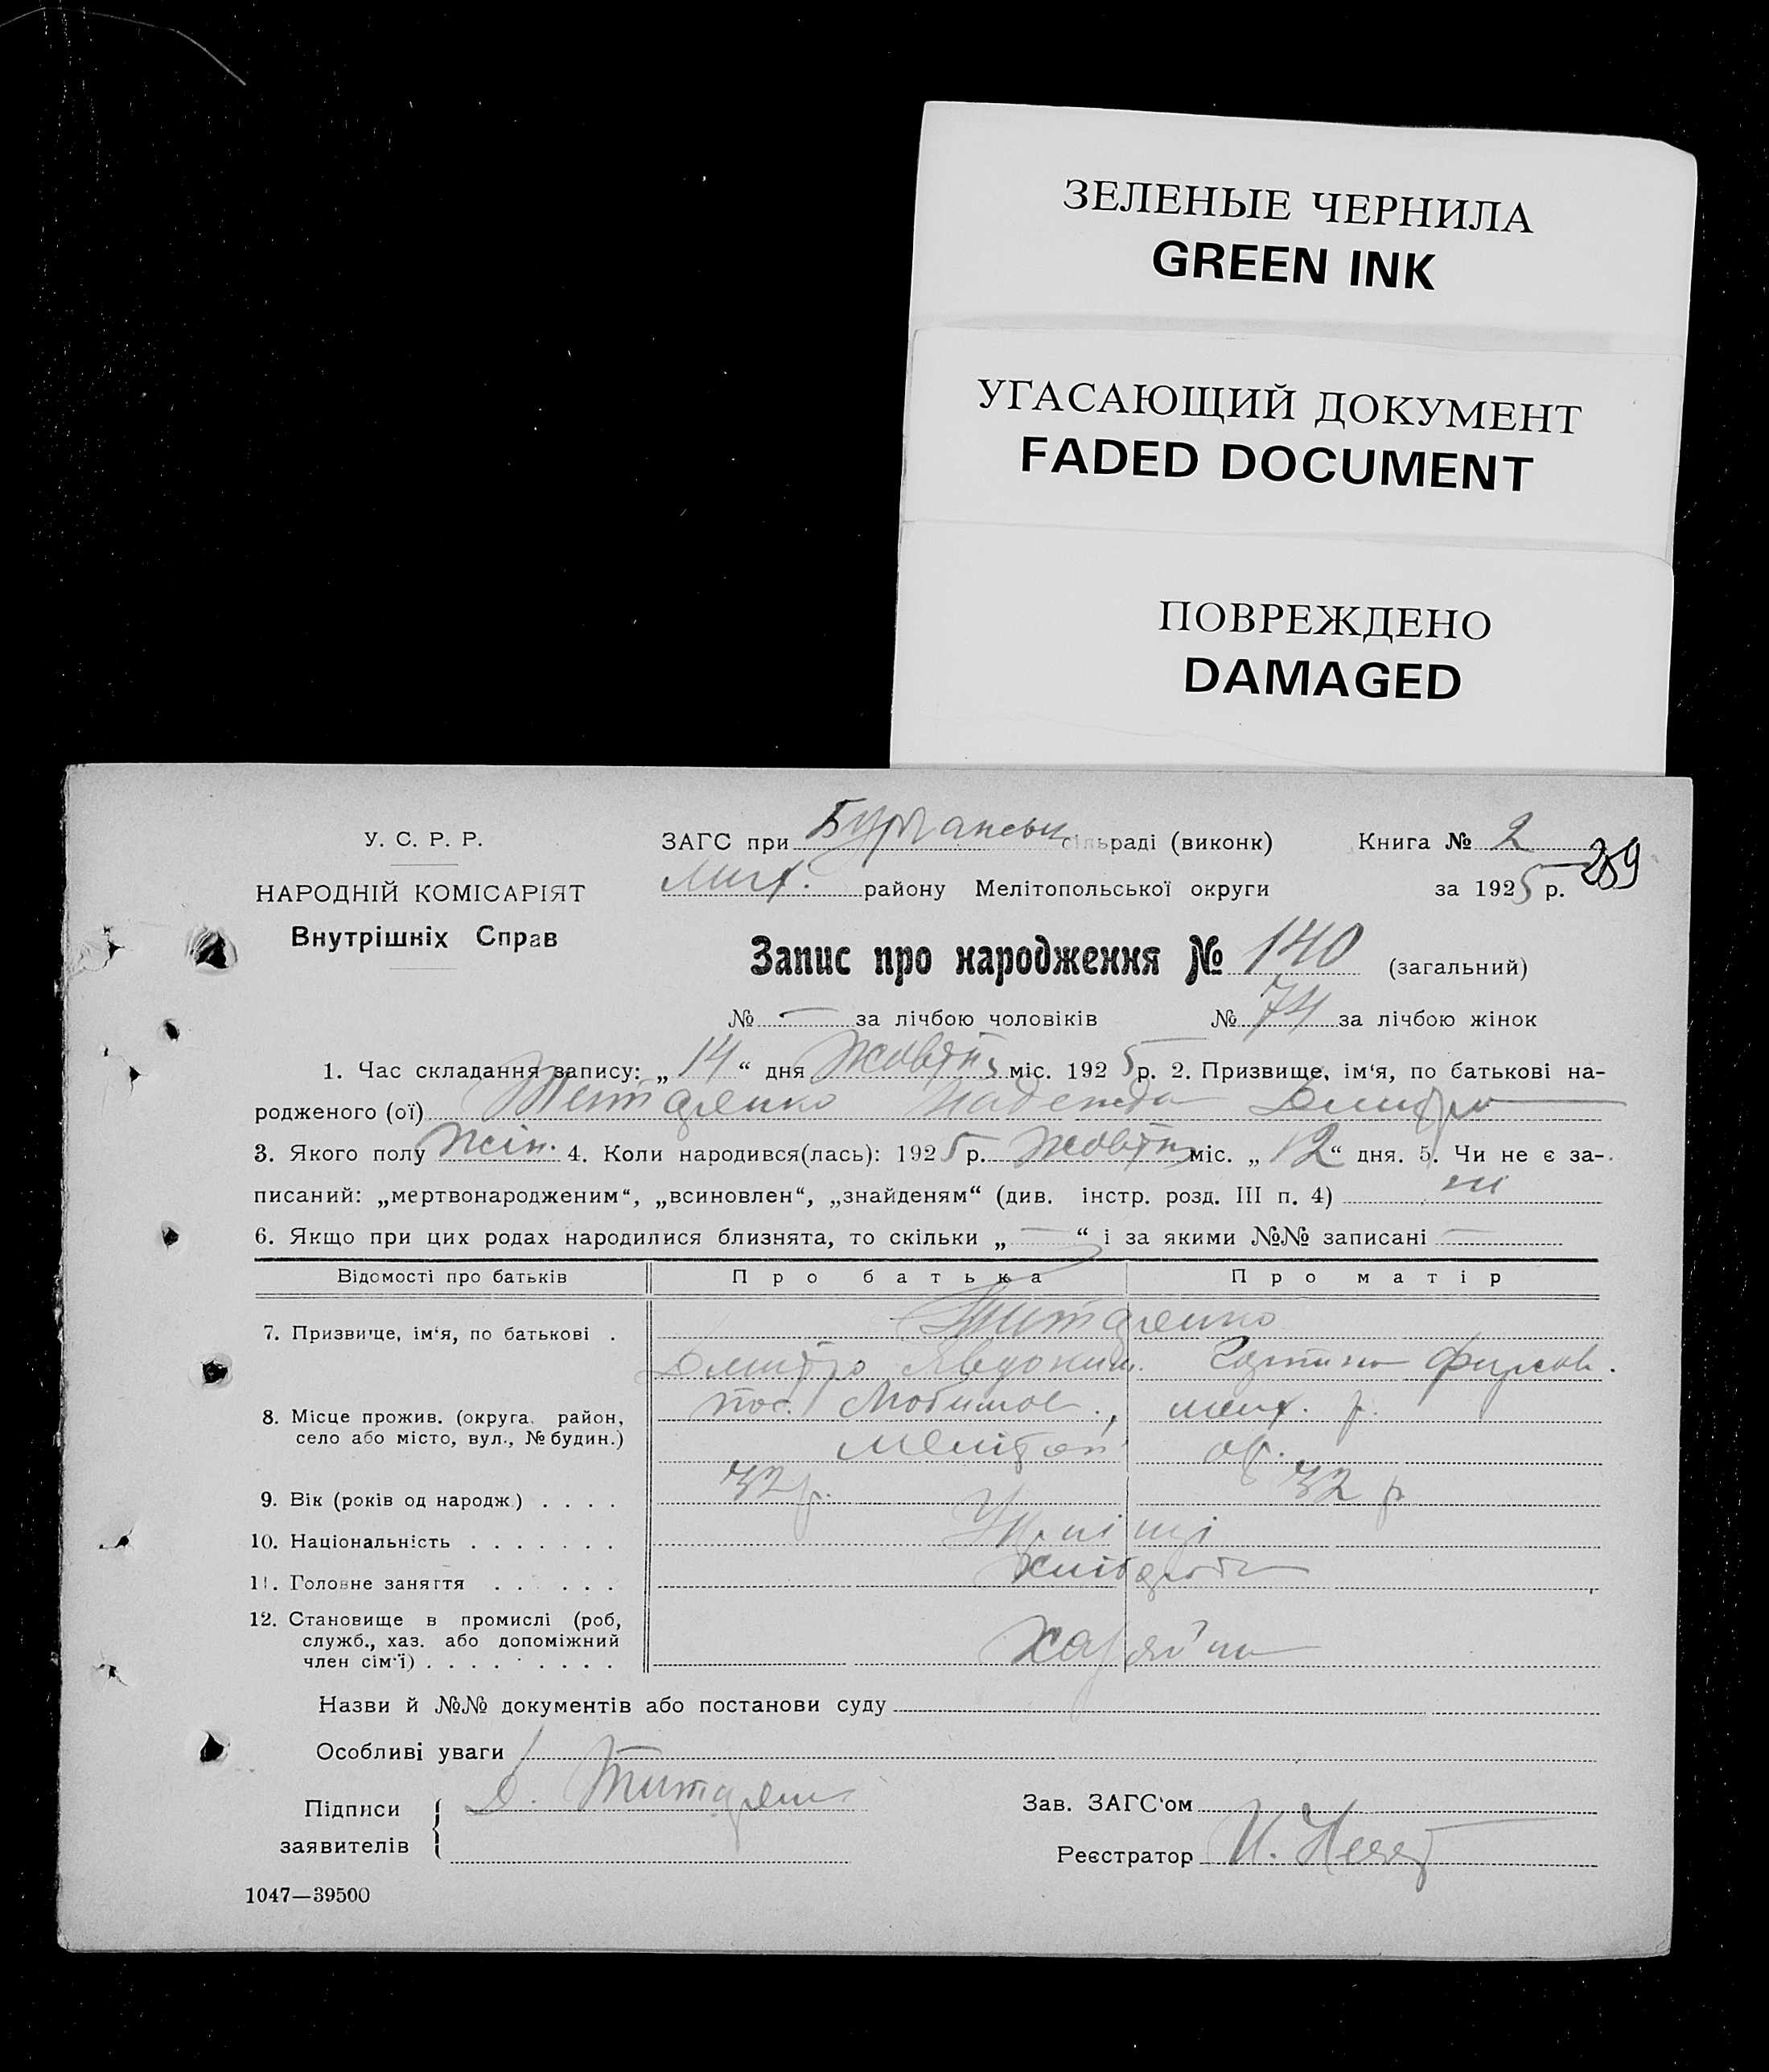 ЗЕЛЕНЫЕ ЧЕРНИЛА
GREEN INK
УГАСАЮЩИЙ ДОКУМЕНТ
FADED DOCUMENT
ПОВРЕЖДЕНО
DAMAGED
У. С. Р. Р.
НАРОДНІЙ КОМІСАРІЯТ
Внутрішніх Справ
ЗАГС при сільраді (виконк) Книга № 2
289
Мих. району Мелітопольської округи за 1925 р.
Запис про народження № 140 (загальний)
№ — за лічбою чоловіків № 74 за лічбою жінок
1. Час складання запису: „14“ дня Жовтн міс. 1925 р. 2. Призвище, ім'я, по батькові на-
родженого (ої) Надежда Дмитр
3. Якого полу жін. 4. Коли народився(лась): 1925 р. Жовтн міс. „12“ дня. 5. Чи не є за-
писаний: „мертвонародженим“, „всиновлен“, „знайденям“ (див. інстр. розд. III п. 4) ні
6. Якщо при цих родах народилися близнята, то скільки „—“ і за якими №№ записані —
Відомості про батьків Про батька Про матір
7. Призвище, ім'я, по батькові .
Дмитро Явдоким.
8. Місце прожив. (округа, район, пос. Любимов., р.
село або місто, вул., № будин.) Мелітоп ок.
9. Вік (років од народж.) . . . . 32 р. 32 р
10. Національність . . . . . . . Укрпінці
11. Головне заняття . . . . . . хлібороб
12. Становище в промислі (роб,
служб., хаз. або допоміжний
член сім'ї) . . . . . . . . .
Назви й №№ документів або постанови суду
Особливі уваги
Підписи Д. Зав. ЗАГС'ом
заявителів Реєстратор
1047—39500